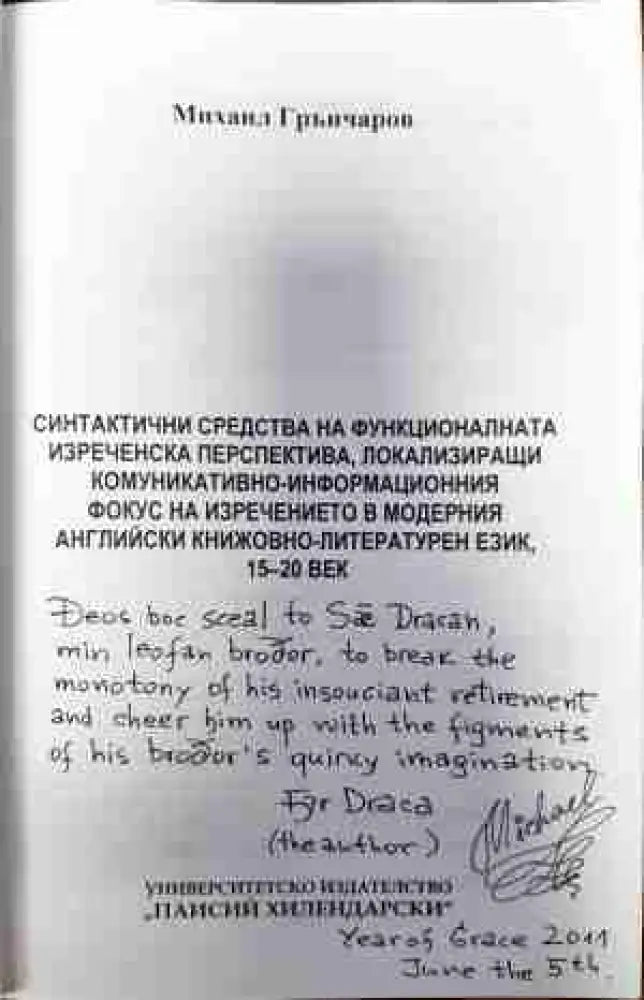 Михаил Грънчаров
СИНТАКТИЧНИ СРЕДСТВА НА ФУНКЦИОНАЛНАТА
ИЗРЕЧЕНСКА ПЕРСПЕКТИВА, ЛОКАЛИЗИРАЩИ
КОМУНИКАТИВНО-ИНФОРМАЦИОННИЯ
ФОКУС НА ИЗРЕЧЕНИЕТО В МОДЕРНИЯ
АНГЛИЙСКИ КНИЖОВНО-ЛИТЕРАТУРЕН ЕЗИК,
15–20 ВЕК
Ðeos boc sceal to Sǣ Dracan,
min leofan broðor, to break the
monotony of his insouciant retirement
and cheer him up with the figments
of his broðor's quincy imagination
Fȳr Draca
(the author)
Michael
УНИВЕРСИТЕТСКО ИЗДАТЕЛСТВО
„ПАИСИЙ ХИЛЕНДАРСКИ“
Year of Grace 2011
June the 5th